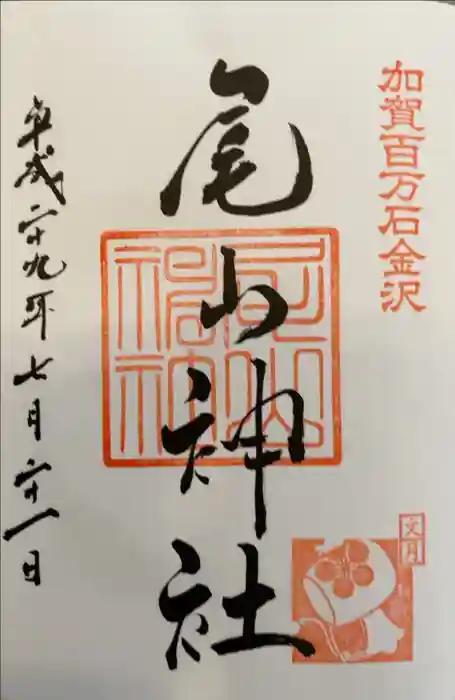 加賀百万石金沢
尾山神社
尾山神社
文月
平成二十九年七月二十一日